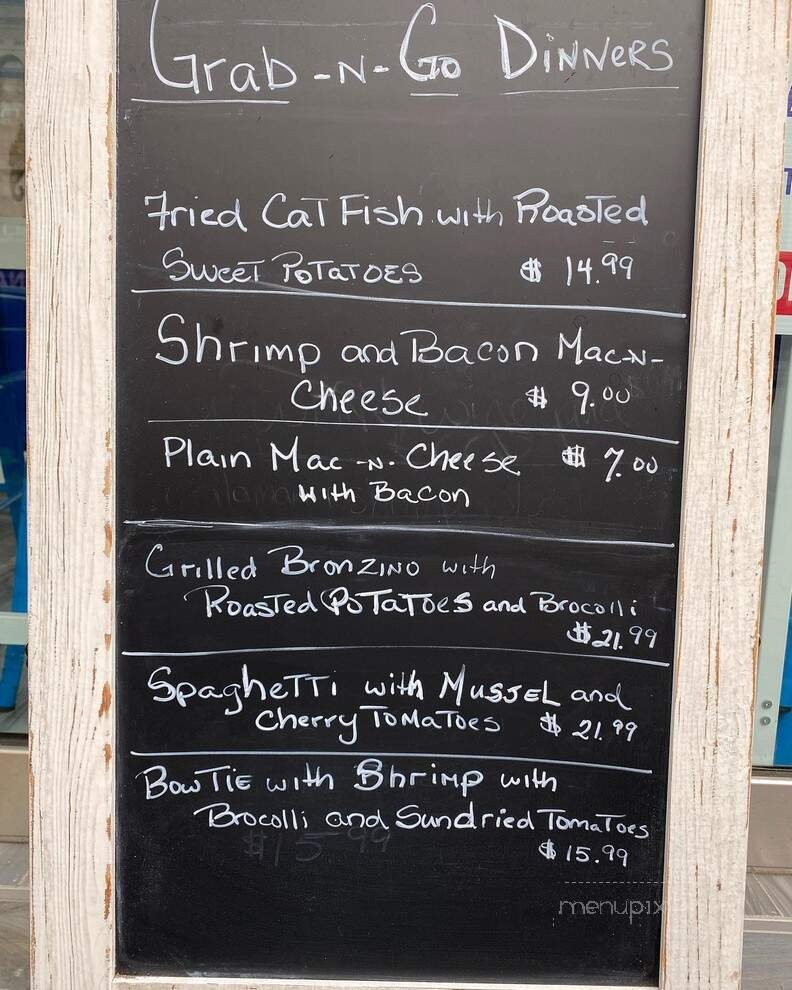 Grab-N-Go Dinners
Fried CaT Fish with Roasted
Sweet Potatoes $ 14.99
Shrimp and Bacon Mac-N-
Cheese $ 9.00
Plain Mac-N-Cheese $ 7.00
with Bacon
Grilled Bronzino with
Roasted Potatoes and Brocolli
$21.99
Spaghetti with Mussel and
Cherry Tomatoes $ 21.99
Bow Tie with Shrimp with
Brocolli and Sundried Tomatoes
$15.99
$ 15.99
menupix